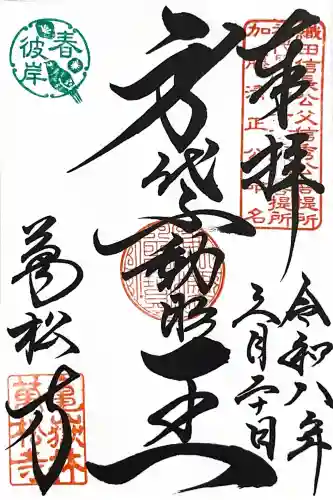 奉拝
織田信長公父信秀公菩提所
加藤清正公命名
令和八年
三月二十日
身代不動明王
春彼岸
萬松寺
亀嶽林
萬松寺